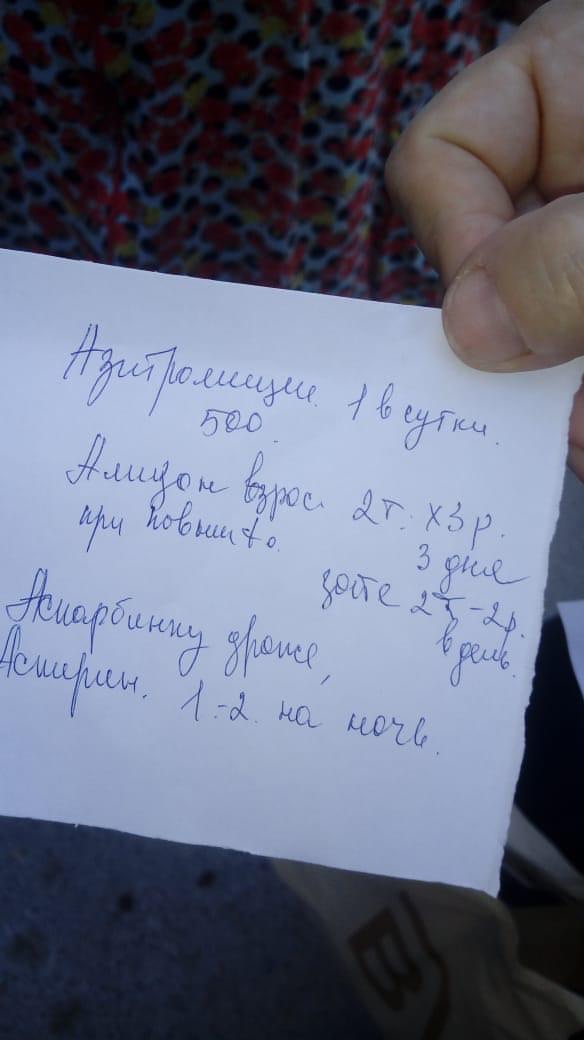 Азитромицин. 1 в сутки.
500.
Амизон взрос. 2т. х3 р.
при повыш. to.
3 дня
зате 2т-2р.
в день.
Аскорбинку драже,
Аспирин. 1.-2. на ночь.
В